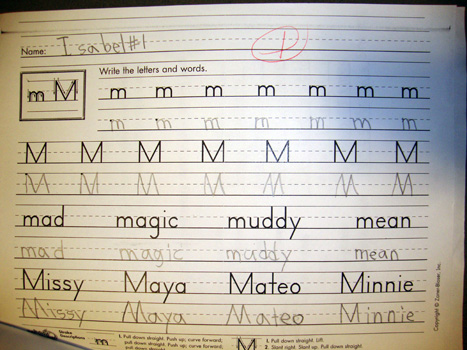 Name: Isabel #1
Write the letters and words.
m M m m m m m m m
m m m m m m m
M M M M M M M
M M M M M M M
mad magic muddy mean
mad magic muddy mean
Missy Maya Mateo Minnie
Missy Maya Mateo Minnie
Stroke Descriptions
m 1. Pull down straight. Push up; curve forward;
pull down straight. Push up; curve forward;
M 1. Pull down straight. Lift.
2. Slant right. Slant up. Pull down straight.
Copyright © Zaner-Bloser, Inc.